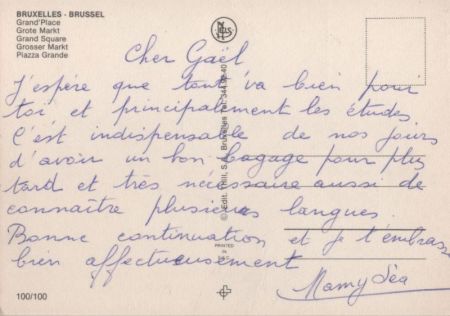 BRUXELLES - BRUSSEL
Grand'Place
Grote Markt
Grand Square
Grosser Markt
Piazza Grande
Cher Gaël
J'espère que tout va bien pour
toi et principalement les études.
C'est indispensable de nos jours
d'avoir un bon bagage pour plus
tard et très nécessaire aussi de
connaître plusieurs langues.
Bonne continuation et je t'embrasse
bien affectueusement
Mamy Léa
PRINTED
IN
100/100